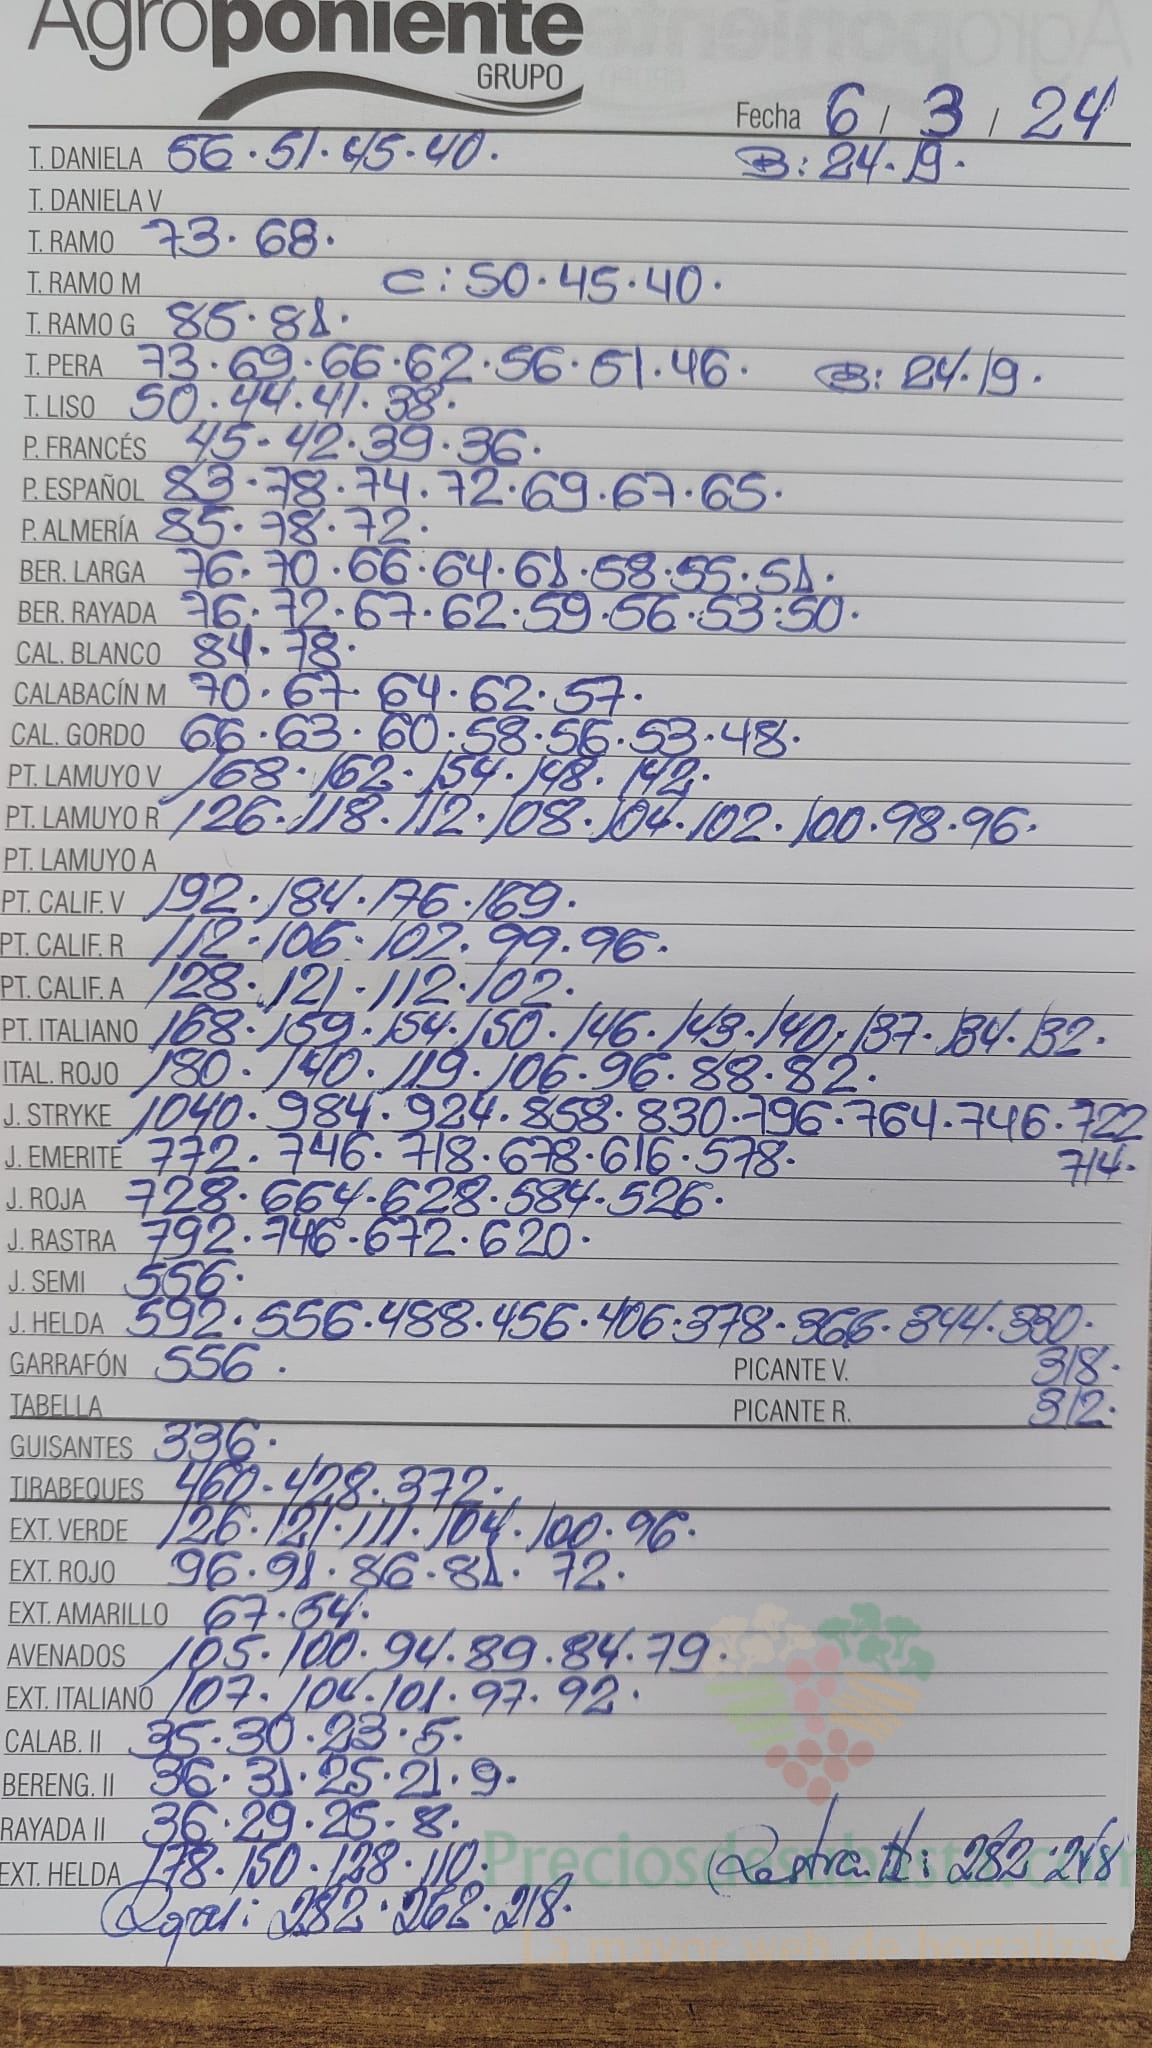 Agroponiente
GRUPO
Fecha 6 / 3 / 24
T. DANIELA 56.51.45.40. B: 24.19.
T. DANIELA V
T. RAMO 73.68.
T. RAMO M C: 50.45.40.
T. RAMO G 85.81.
T. PERA 73.69.66.62.56.51.46. B: 24.19.
T. LISO 50.44.41.38.
P. FRANCÉS 45.42.39.36.
P. ESPAÑOL 83.78.74.72.69.67.65.
P. ALMERÍA 85.78.72.
BER. LARGA 76.70.66.64.61.58.55.51.
BER. RAYADA 76.72.67.62.59.56.53.50.
CAL. BLANCO 84.78.
CALABACÍN M 70.67.64.62.57.
CAL. GORDO 66.63.60.58.56.53.48.
PT. LAMUYO V 168.162.154.148.142.
PT. LAMUYO R 126.118.112.108.104.102.100.98.96.
PT. LAMUYO A
PT. CALIF. V 192.184.176.169.
PT. CALIF. R 112.106.102.99.96.
PT. CALIF. A 128.121.112.102.
PT. ITALIANO 168.159.154.150.146.143.140.137.134.132.
ITAL. ROJO 180.140.119.106.96.88.82.
J. STRYKE 1040.984.924.858.830.796.764.746.722
J. EMERITE 772.746.718.678.616.578. 714.
J. ROJA 728.664.628.584.526.
J. RASTRA 792.746.672.620.
J. SEMI 556.
J. HELDA 592.556.488.456.406.378.366.344.330.
GARRAFÓN 556. PICANTE V. 318.
TABELLA PICANTE R. 312.
GUISANTES 336.
TIRABEQUES 460.428.372.
EXT. VERDE 126.121.111.104.100.96.
EXT. ROJO 96.91.86.81.72.
EXT. AMARILLO 67.54.
AVENADOS 105.100.94.89.84.79.
EXT. ITALIANO 107.104.101.97.92.
CALAB. II 35.30.23.5.
BERENG. II 36.31.25.21.9.
RAYADA II 36.29.25.8.
EXT. HELDA 178.150.128.110. Rastra II: 282.248
282.262.218.
Preciosdesubasta.com
La mayor web de hortalizas